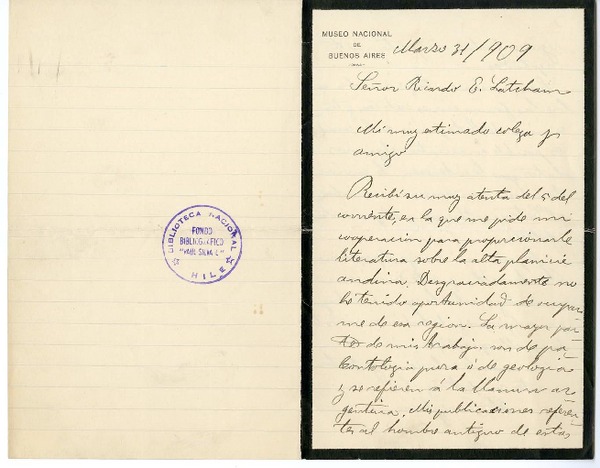 BIBLIOTECA NACIONAL
FONDO
BIBLIOGRAFICO
"RAUL SILVA C."
CHILE
MUSEO NACIONAL
DE
BUENOS AIRES
Marzo 31/909
Señor Ricardo E. Latcham
Mi muy estimado colega y
amigo
Recibí su muy atenta del 5 del
corriente, en la que me pide mi
cooperacion para proporcionarle
literatura sobre la alta planicie
andina. Desgraciadamente no
he tenido oportunidad de ocupar
me de esa region. La mayor par
te de mis trabajos son de pa
leontologia pura ó de geologia
y se refieren á la llanura ar
gentina. Mis publicaciones referen
tes al hombre antiguo de estas